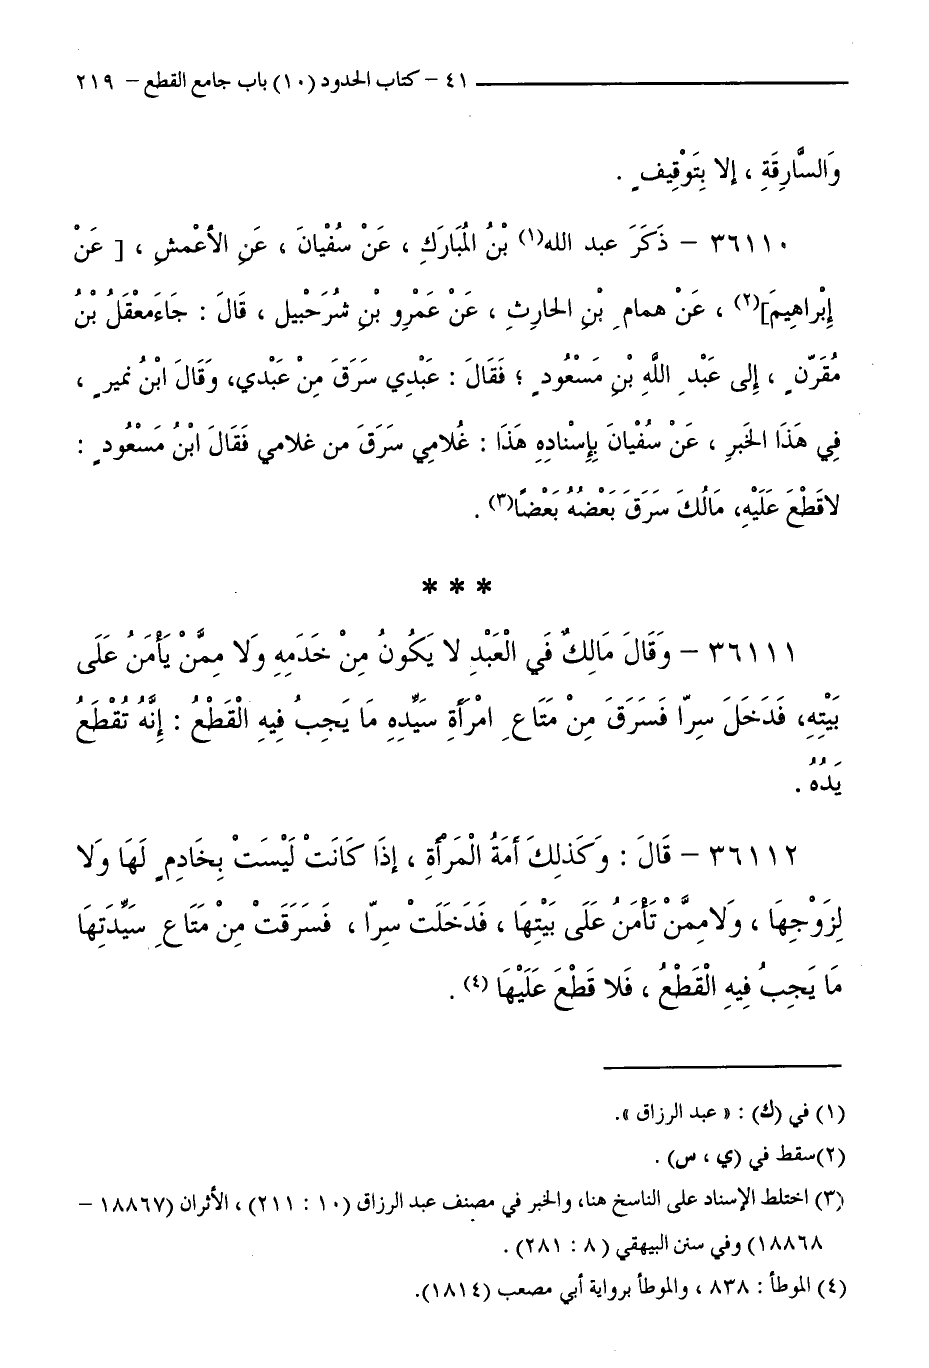 ٤١ – كتاب الحدود (١٠) باب جامع القطع – ٢١٩
وَالسَّارِقَةِ ، إلا بِتَوْقِيفٍ .
٣٦١١٠ – ذَكَرَ عبد الله(١) بْنُ المُبَارَكِ ، عَنْ سُفْيانَ ، عَنِ الأعْمشِ ، [ عَنْ
إبْراهِيمَ](٢) ، عَنْ همامِ بْنِ الحارِثِ ، عَنْ عَمْرِو بْنِ شُرَحْبيل ، قَالَ : جَاءَمعْقَلُ بْنُ
مُقَرّنٍ ، إلى عَبْدِ اللَّهِ بْنِ مَسْعُودٍ ؛ فَقالَ : عَبْدي سَرَقَ مِنْ عَبْدي، وَقَالَ ابْنُ نميرٍ ،
فِي هَذَا الخَبرِ ، عَنْ سُفْيانَ بِإسْنادِهِ هَذَا : غُلامِي سَرَقَ من غلامي فَقالَ ابْنُ مَسْعُودٍ :
لاقَطْعَ عَلَيْهِ، مَالُكَ سَرَقَ بَعْضُهُ بَعْضًا(٣) .
* * *
٣٦١١١ – وَقَالَ مَالِكٌ في الْعَبْدِ لا يَكُونُ مِنْ خَدَمِهِ وَلا مِمَّنْ يَأْمَنُ عَلَى
بَيْتِهِ، فَدَخَلَ سِرّا فَسَرَقَ مِنْ مَتَاعِ امْرَأَةِ سَيِّدِهِ مَا يَجِبُ فِيهِ الْقَطْعُ : إِنَّهُ تُقْطَعُ
يَدُهُ .
٣٦١١٢ – قَالَ : وَكَذلِكَ أمَةُ الْمَرْأةِ ، إذَا كَانَتْ لَيْسَتْ بِخَادِمٍ لَهَا وَلا
لِزَوْجِهَا ، وَلامِمَّنْ تَأْمَنُ عَلَى بَيْتِها ، فَدَخَلَتْ سِرّا ، فَسَرَقَتْ مِنْ مَتَاعِ سَيِّدَتِهَا
مَا يَجِبُ فِيهِ الْقَطْعُ ، فَلا قَطْعَ عَلَيْهَا (٤) .
(١) في (ك) : « عبد الرزاق ».
(٢)سقط في (ي ، س) .
(٣) اختلط الإسناد على الناسخ هنا، والخبر في مصنف عبد الرزاق (١٠ : ٢١١) ، الأثران (١٨٨٦٧ –
١٨٨٦٨) وفي سنن البيهقي (٨ : ٢٨١) .
(٤) الموطأ : ٨٣٨ ، والموطأ برواية أبي مصعب (١٨١٤).